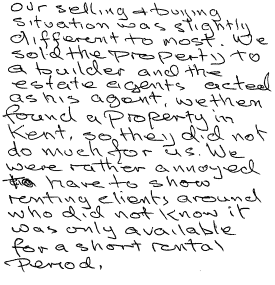 our selling & buying
situation was slightly
different to most. We
sold the property to
a builder and the
estate agents acted
as his agent, we then
found a Property in
Kent, so they did not
do much for us. We
were rather annoyed
to have to show
renting clients around
who did not know it
was only available
for a short rental
Period.